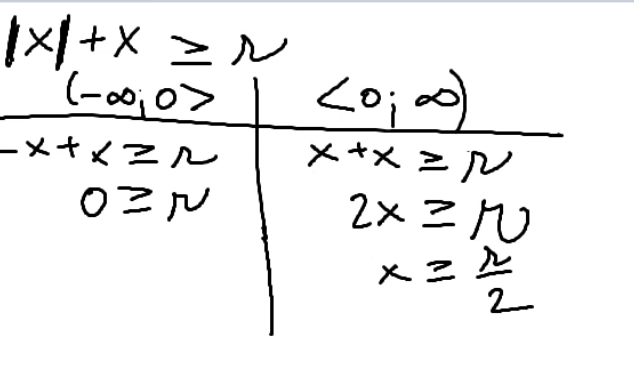 |x|+x ≥ r
(-∞; 0> <0; ∞)
-x+x ≥ r x+x ≥ r
0 ≥ r 2x ≥ r
x ≥ r/2